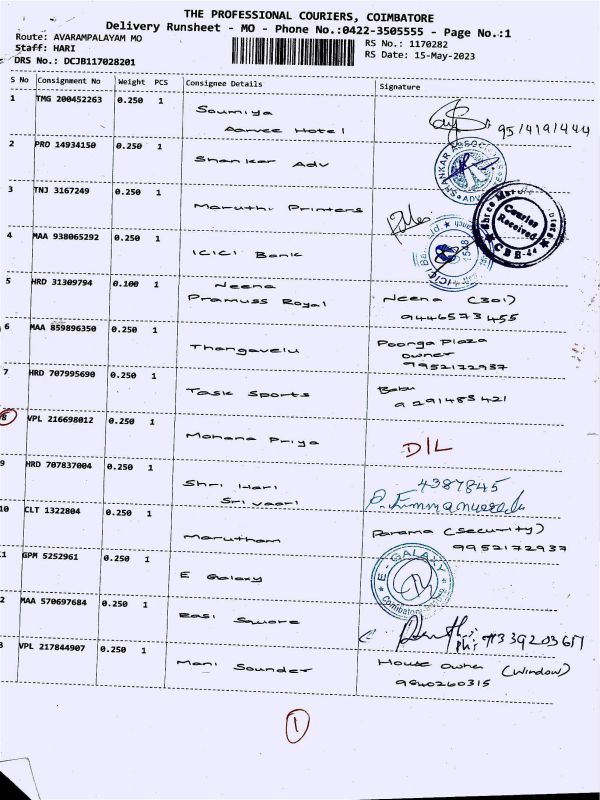 THE PROFESSIONAL COURIERS, COIMBATORE
Delivery Runsheet - MO - Phone No.:0422-3505555 - Page No.:1
Route: AVARAMPALAYAM MO
RS No.: 1170282
Staff: HARI
RS Date: 15-May-2023
DRS No.: DCJB117028201
S No Consignment No Weight PCS Consignee Details Signature
1 TMG 200452263 0.250 1 Soumiya
Aarvee Hotel
95/4191444
2 PRO 14934150 0.250 1 Shankar Adv
SHANKAR ASSOC
3 TNJ 3167249 0.250 1 Maruthi Printers
Shree
Courier
Received
CBE-44
4 MAA 938065292 0.250 1 ICICI Bank
ICICI Ba
5 HRD 31309794 0.100 1 Neena
Pramuss Royal
Neena (301)
9446573455
6 MAA 859896350 0.250 1 Thangavelu
Poonga Plaza
owner
9952172937
7 HRD 707995690 0.250 1 Task Sports
Babu
9291485421
8 VPL 216698012 0.250 1 Mohana Priya
D/L
9 HRD 707837004 0.250 1 Shri Hari
Sri vaari
4387845
10 CLT 1322804 0.250 1 Marutham
Parama (security)
9952172937
1 GPM 5252961 0.250 1 E Galaxy
E-GALAXY
Coimbatore
2 MAA 570697684 0.250 1 Rasi Square
3 VPL 217844907 0.250 1 Mani Sounder
House owner (window)
9840260315
1